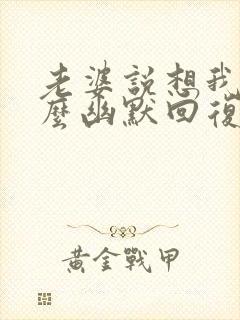 老婆說想我
麼幽默回復
黃金戰甲